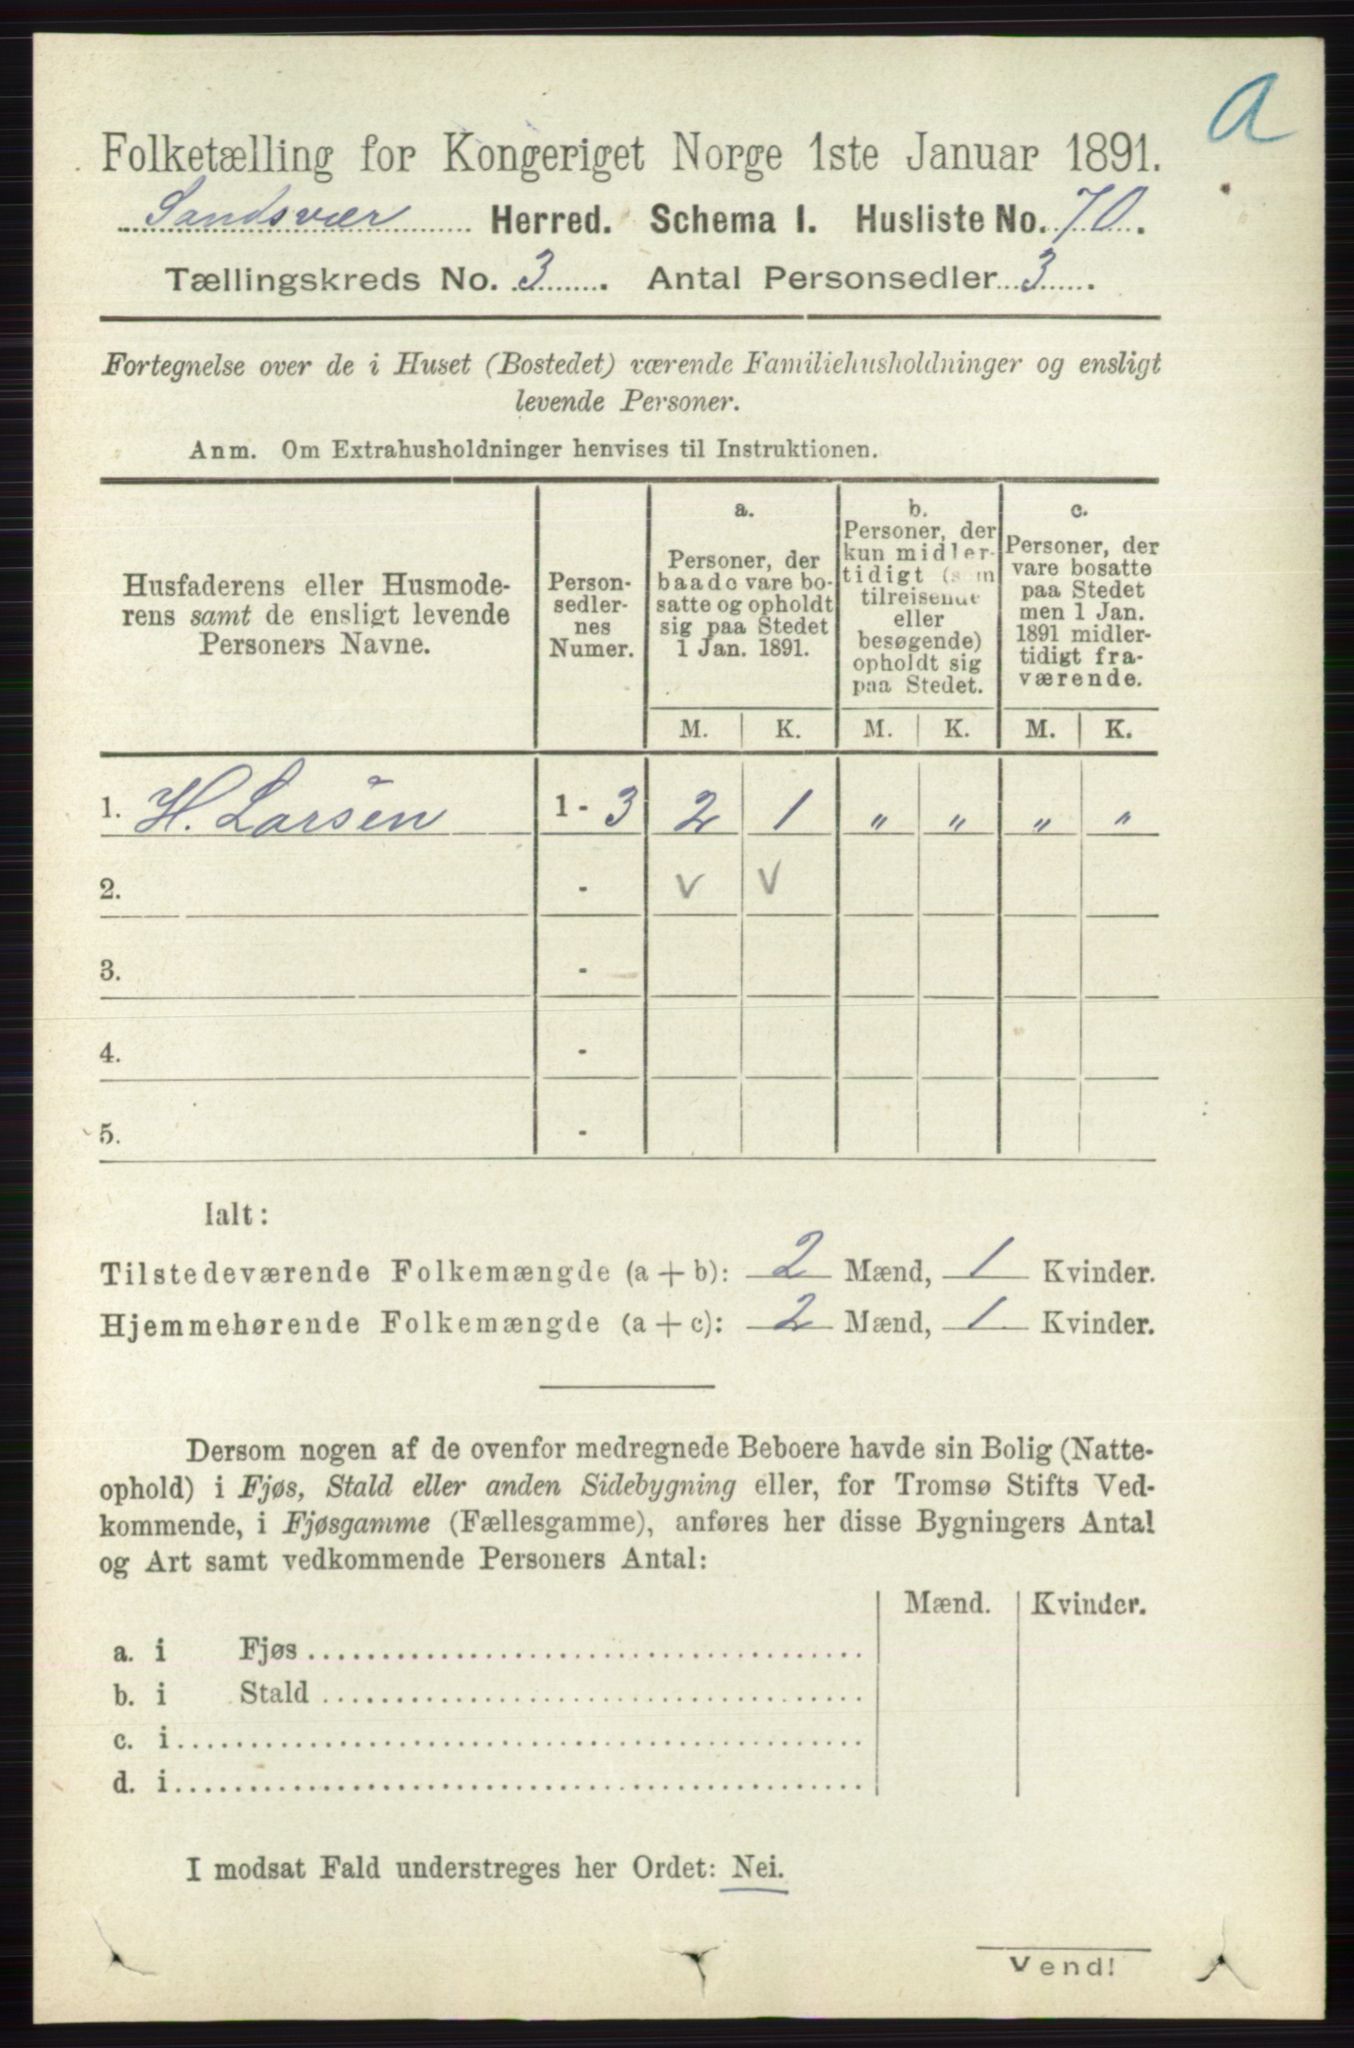 a
Folketælling for Kongeriget Norge 1ste Januar 1891.
Sandsvær Herred. Schema I. Husliste No. 70.
Tællingskreds No. 3. Antal Personsedler 3.
Fortegnelse over de i Huset (Bostedet) værende Familiehusholdninger og ensligt
levende Personer.
Anm. Om Extrahusholdninger henvises til Instruktionen.
Husfaderens eller Husmode-
rens samt de ensligt levende
Personers Navne.
Person-
sedler-
nes
Numer.
a.
Personer, der
baade vare bo-
satte og opholdt
sig paa Stedet
1 Jan. 1891.
b.
Personer, der
kun midler-
tidigt (som
tilreisende
eller
besøgende)
opholdt sig
paa Stedet.
c.
Personer, der
vare bosatte
paa Stedet
men 1 Jan.
1891 midler-
tidigt fra-
værende.
M. K. M. K. M. K.
1. H. Larsen 1 - 3 2 1 " " " "
2. - v v
3. -
4. -
5. -
Ialt:
Tilstedeværende Folkemængde (a + b): 2 Mænd, 1 Kvinder.
Hjemmehørende Folkemængde (a + c): 2 Mænd, 1 Kvinder.
Dersom nogen af de ovenfor medregnede Beboere havde sin Bolig (Natte-
ophold) i Fjøs, Stald eller anden Sidebygning eller, for Tromsø Stifts Ved-
kommende, i Fjøsgamme (Fællesgamme), anføres her disse Bygningers Antal
og Art samt vedkommende Personers Antal:
Mænd. Kvinder.
a. i Fjøs
b. i Stald
c. i
d. i
I modsat Fald understreges her Ordet: Nei.
Vend!